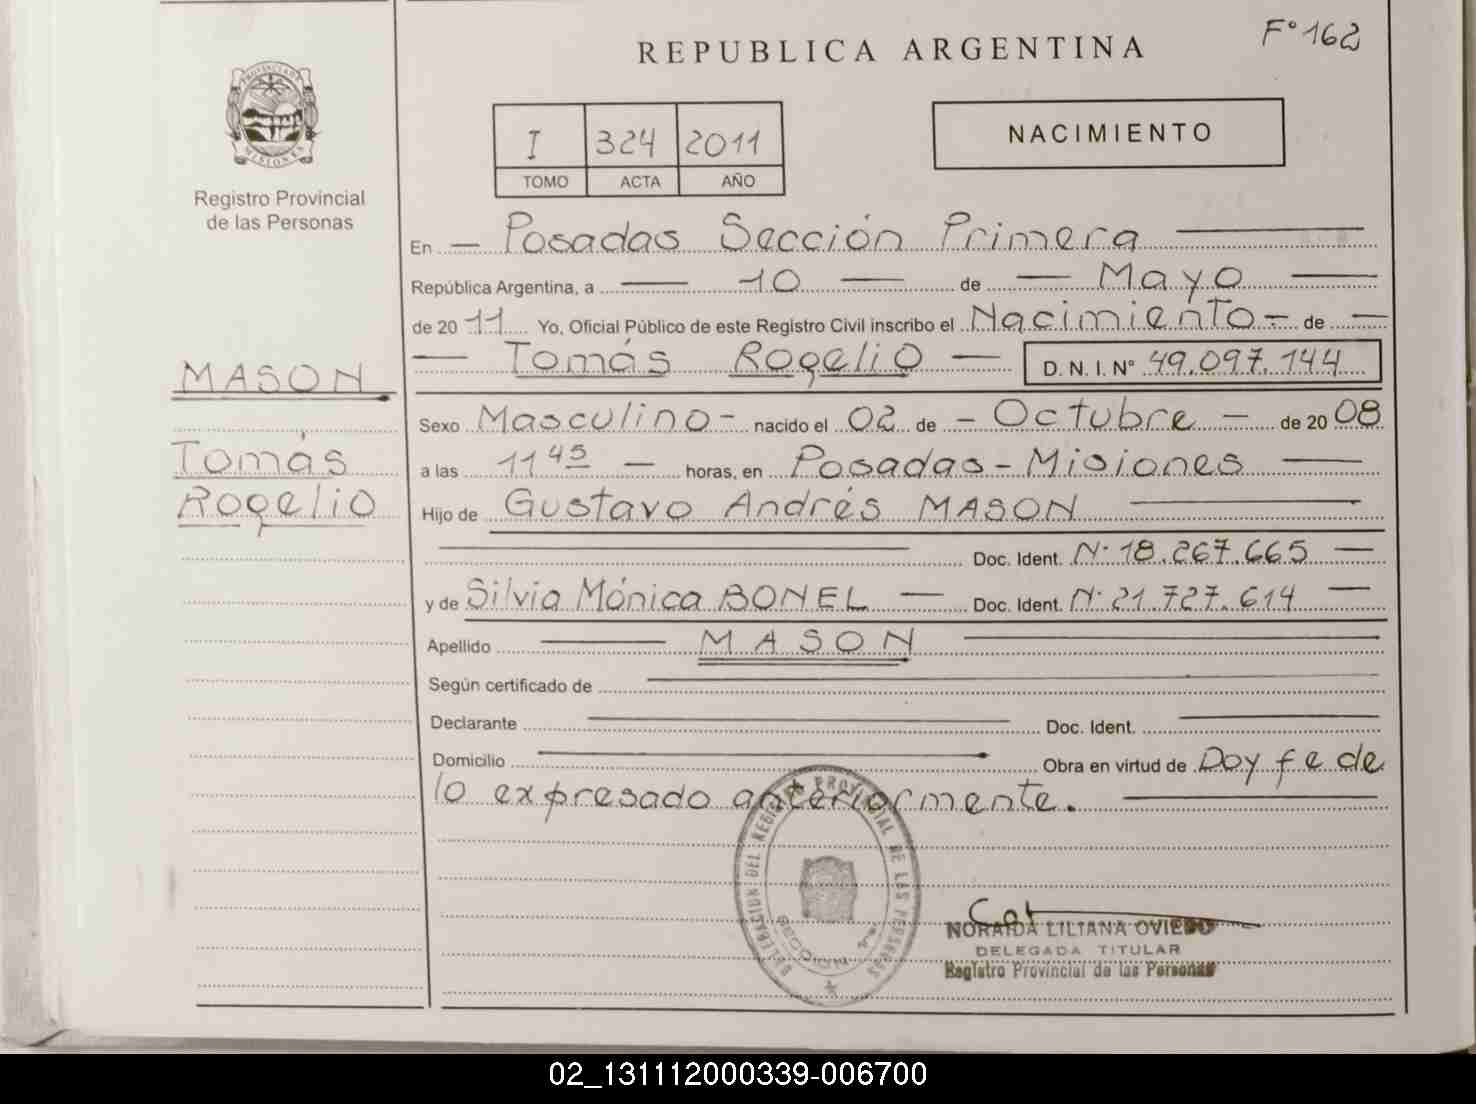 F° 162
REPUBLICA ARGENTINA
PROVINCIA DE MISIONES
Registro Provincial
de las Personas
I 324 2011
TOMO ACTA AÑO
NACIMIENTO
En — Posadas Sección Primera —
República Argentina, a — 10 — de — Mayo —
de 20 11 Yo, Oficial Público de este Registro Civil inscribo el Nacimiento — de —
— Tomás Rogelio — D. N. I. N° 49.097.144
MASON
Tomás
Rogelio
Sexo Masculino - nacido el 02 de - Octubre - de 20 08
a las 11 45 — horas, en Posadas - Misiones —
Hijo de Gustavo Andrés MASON —
— Doc. Ident. N° 18.267.665 —
y de Silvia Mónica BONEL — Doc. Ident. N° 21.727.614 —
Apellido — MASON —
Según certificado de —
Declarante — Doc. Ident. —
Domicilio — Obra en virtud de Doy fe de
lo expresado anteriormente. —
DELEGACION DEL REGISTRO PROVINCIAL DE LAS PERSONAS
NORAIDA LILIANA OVIEDO
DELEGADA TITULAR
Registro Provincial de las Personas
02_131112000339-006700